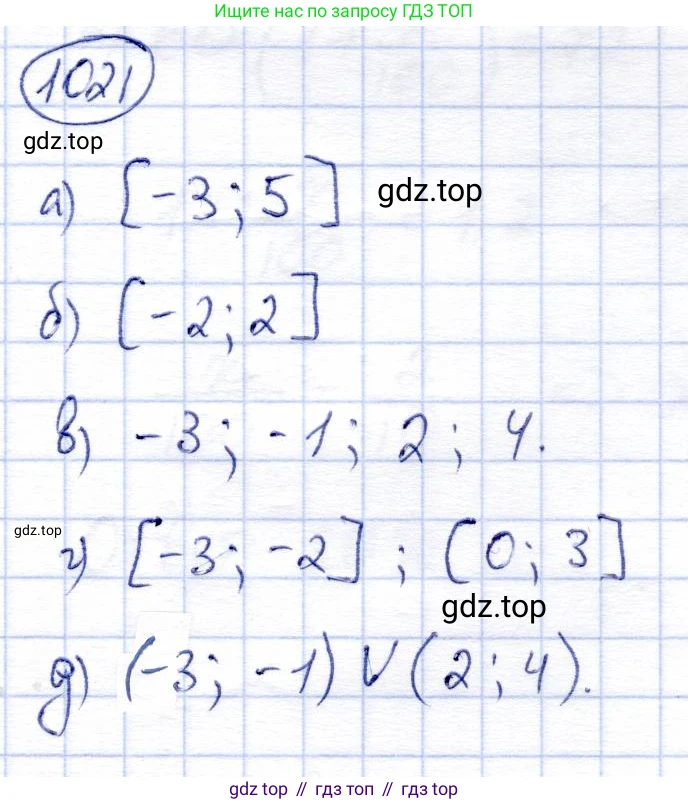 Ищите нас по запросу ГДЗ ТОП
1021
gdz.top
а) [-3; 5] gdz.top
б) [-2; 2]
в) -3; -1; 2; 4.
gdz.top
г) [-3; -2]; [0; 3]
gdz.top
д) (-3; -1) ∨ (2; 4).
gdz top // гдз топ // gdz top